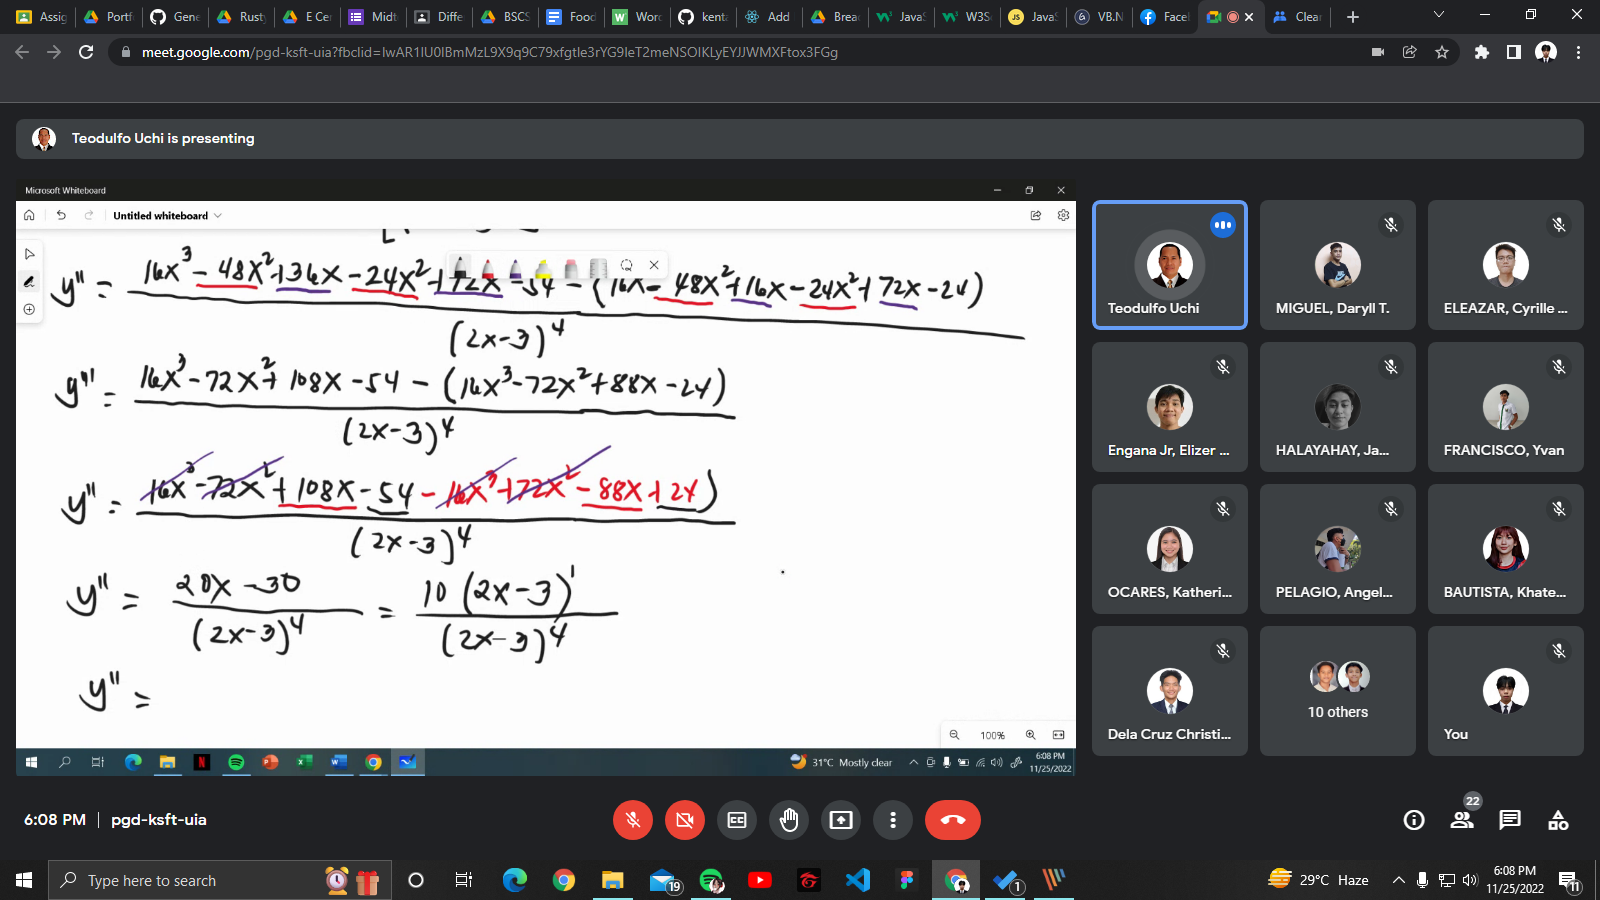 Assig
Portf
Gene
Rusty
E Cer
Midt
Diffe
BSCS
Food
Worc
kenta
Add
Breac
JavaS
W3Sc
JavaS
VB.N
Facel
Clear
meet.google.com/pgd-ksft-uia?fbclid=IwAR1IU0IBmMzL9X9q9C79xfgtle3rYG9IeT2meNSOIKLyEYJJWMXFtox3FGg
Teodulfo Uchi is presenting
Microsoft Whiteboard
Untitled whiteboard
y'' = 16x³ - 48x² + 36x - 24x² + 72x - 54 - (16x - 48x² + 16x - 24x² + 72x - 24)
(2x-3)⁴
y'' = 16x³ - 72x² + 108x - 54 - (16x³ - 72x² + 88x - 24)
(2x-3)⁴
y'' = 16x³ - 72x² + 108x - 54 - 16x³ + 72x² - 88x + 24)
(2x-3)⁴
y'' = 20x - 30 = 10 (2x-3)¹
(2x-3)⁴ (2x-3)⁴
y'' =
100%
31°C Mostly clear
6:08 PM
11/25/2022
Teodulfo Uchi
MIGUEL, Daryll T.
ELEAZAR, Cyrille ...
Engana Jr, Elizer ...
HALAYAHAY, Ja...
FRANCISCO, Yvan
OCARES, Katheri...
PELAGIO, Angel...
BAUTISTA, Khate...
Dela Cruz Christi...
10 others
You
6:08 PM | pgd-ksft-uia
22
Type here to search
19
1
29°C Haze
6:08 PM
11/25/2022
11